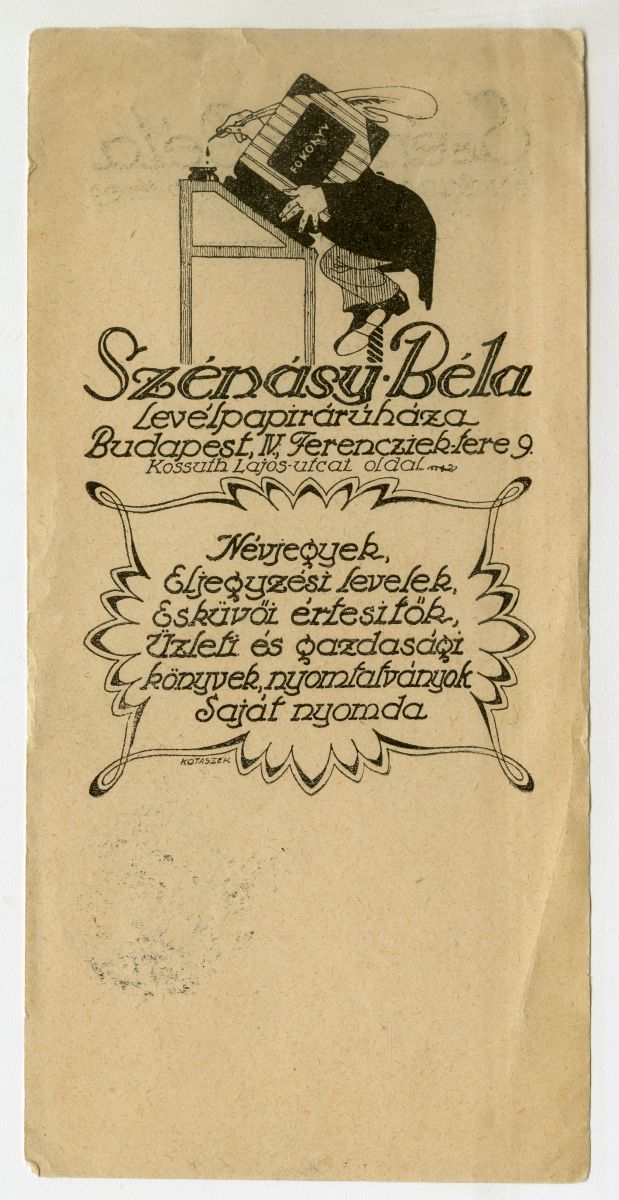 FŐKÖNYV
Szénásy · Béla
Levélpapiráruháza
Budapest, IV, Ferencziek-tere 9.
Kossuth Lajos-utcai oldal
Névjegyek,
Eljegyzési levelek,
Esküvői értesitők,
Üzleti és gazdasági
könyvek, nyomtatványok
Saját nyomda
KOTASZEK